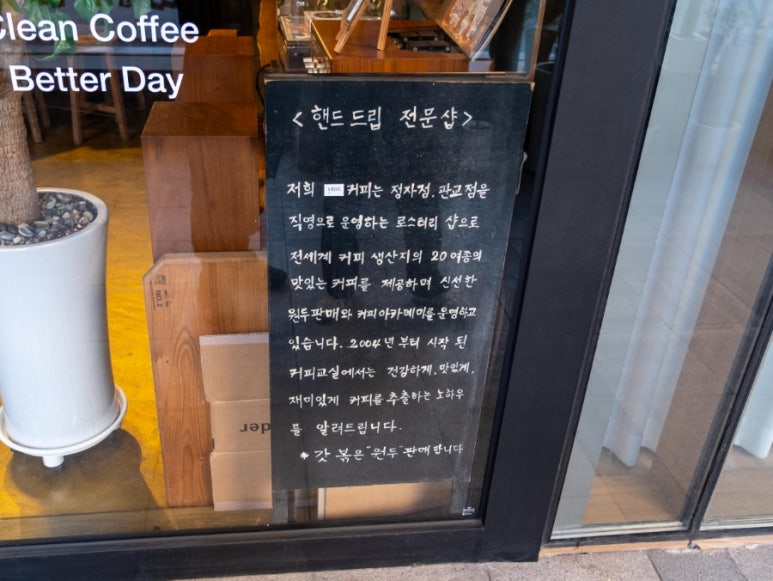 Clean Coffee
Better Day
<핸드드립 전문샵>
저희 ywc 커피는 정자점, 판교점을
직영으로 운영하는 로스터리 샵으로
전세계 커피 생산지의 20여종의
맛있는 커피를 제공하며 신선한
원두판매와 커피아카데미를 운영하고
있습니다. 2004년부터 시작 된
커피교실에서는 건강하게, 맛있게,
재미있게 커피를 추출하는 노하우
를 알려드립니다.
* 갓 볶은 "원두" 판매합니다